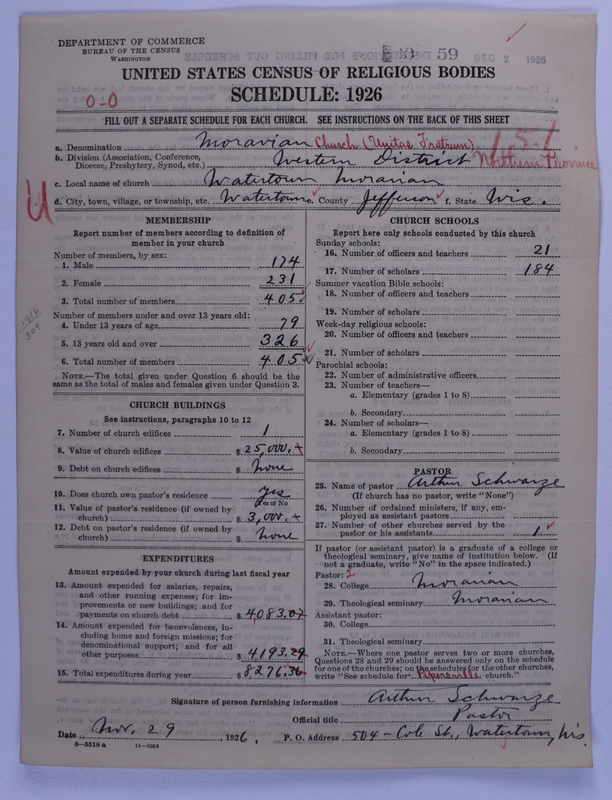 DEPARTMENT OF COMMERCE
BUREAU OF THE CENSUS
WASHINGTON
59
DEC 2 1926
UNITED STATES CENSUS OF RELIGIOUS BODIES
SCHEDULE: 1926
0-0
FILL OUT A SEPARATE SCHEDULE FOR EACH CHURCH. SEE INSTRUCTIONS ON THE BACK OF THIS SHEET
a. Denomination Moravian Church (Unitas Fratrum) 15-1
b. Division (Association, Conference, Diocese, Presbytery, Synod, etc.) Western District Northern Province
c. Local name of church Watertown Moravian
d. City, town, village, or township, etc. Watertown e. County Jefferson f. State Wis.
MEMBERSHIP
Report number of members according to definition of
member in your church
Number of members, by sex:
1. Male 174
2. Female 231
3. Total number of members 405
Number of members under and over 13 years old:
4. Under 13 years of age 79
5. 13 years old and over 326
6. Total number of members 405
NOTE.—The total given under Question 6 should be the
same as the total of males and females given under Question 3.
CHURCH BUILDINGS
See instructions, paragraphs 10 to 12
7. Number of church edifices 1
8. Value of church edifices $ 25,000.
9. Debt on church edifices $ none
10. Does church own pastor's residence yes
Yes or No
11. Value of pastor's residence (if owned by
church) $ 3,000.
12. Debt on pastor's residence (if owned by
church) $ none
EXPENDITURES
Amount expended by your church during last fiscal year
13. Amount expended for salaries, repairs,
and other running expenses; for im-
provements or new buildings; and for
payments on church debt $ 4083.07
14. Amount expended for benevolences, in-
cluding home and foreign missions; for
denominational support; and for all
other purposes $ 4193.29
15. Total expenditures during year $ 8276.36
CHURCH SCHOOLS
Report here only schools conducted by this church
Sunday schools:
16. Number of officers and teachers 21
17. Number of scholars 184
Summer vacation Bible schools:
18. Number of officers and teachers
19. Number of scholars
Week-day religious schools:
20. Number of officers and teachers
21. Number of scholars
Parochial schools:
22. Number of administrative officers
23. Number of teachers—
a. Elementary (grades 1 to 8)
b. Secondary
24. Number of scholars—
a. Elementary (grades 1 to 8)
b. Secondary
PASTOR
25. Name of pastor Arthur Schwarze
(If church has no pastor, write "None")
26. Number of ordained ministers, if any, em-
ployed as assistant pastors
27. Number of other churches served by the
pastor or his assistants 1
If pastor (or assistant pastor) is a graduate of a college or
theological seminary, give name of institution below. (If
not a graduate, write "No" in the space indicated.)
Pastor: 2
28. College Moravian
29. Theological seminary Moravian
Assistant pastor:
30. College
31. Theological seminary
NOTE.—Where one pastor serves two or more churches,
Questions 28 and 29 should be answered only on the schedule
for one of the churches; on the schedules for the other churches,
write "See schedule for Pipersville church."
Signature of person furnishing information Arthur Schwarze
Official title Pastor
Date Nov. 29, 1926. P. O. Address 504 - Cole St., Watertown, Wis.
8-5518 a 11-9034